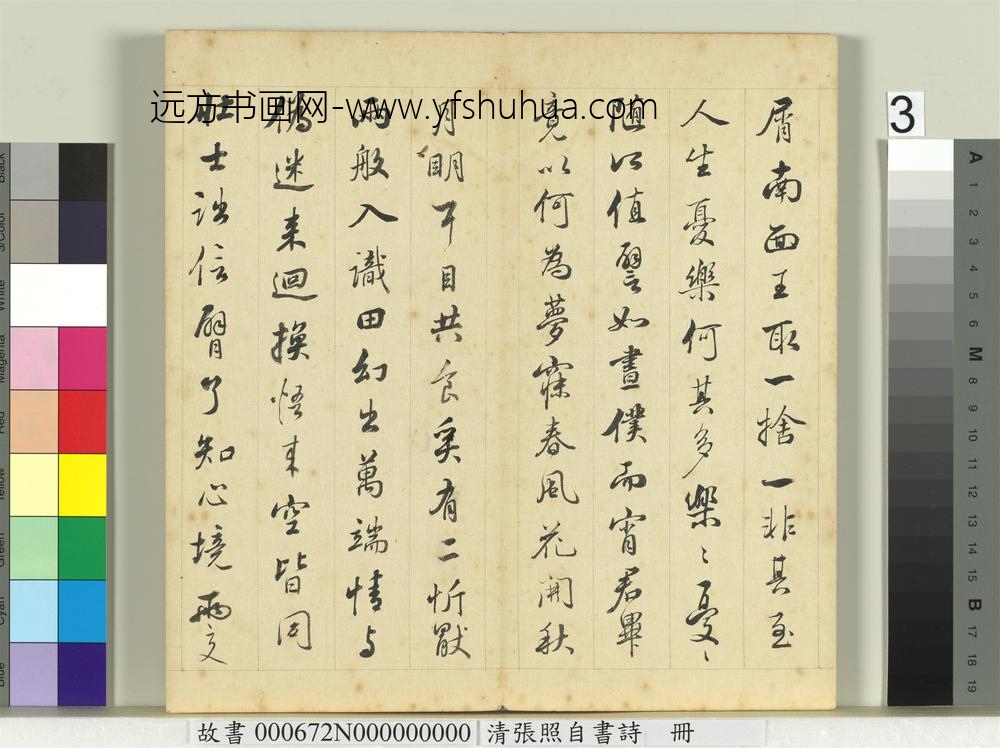 屑南面王取一捨一非其至
人生憂樂何其多樂〻憂〻
隨所值譬如晝僕而宵君畢
竟以何為夢寐春風花開秋
月明耳目共食奚有二忻厭
兩般入識田幻出萬端情与
迷来迴換悟来空皆同
壯士詘信臂了知心境兩交
远方书画网-www.yfshuhua.com
3
A 1 2 3 4 5 6 M 8 9 10 11 12 13 14 15 B 17 18 19
Black
3/Color
White
Magenta
Red
Yellow
Green
Cyan
Blue
故書 000672N000000000 清張照自書詩 冊